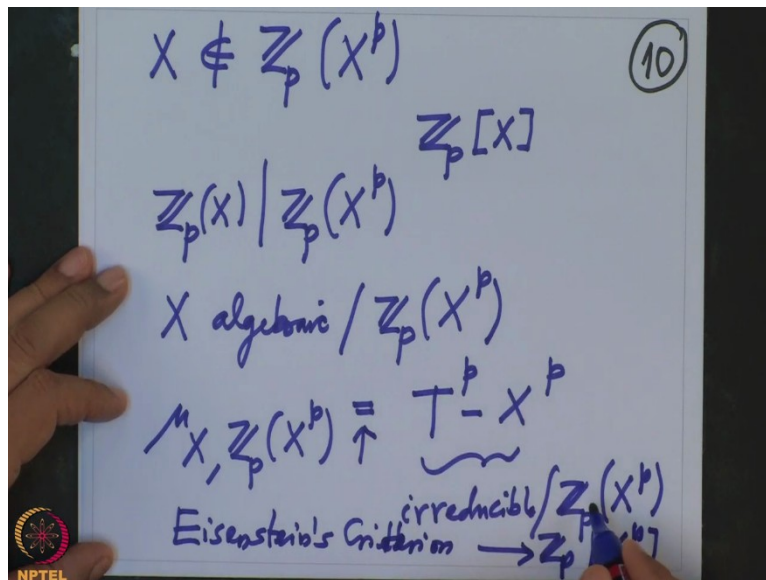 X ∉ ℤ_p (X^p)
10
ℤ_p [X]
ℤ_p(X) | ℤ_p(X^p)
X algebraic / ℤ_p(X^p)
μ_X, ℤ_p(X^p) = T^p - X^p
↑
irreducible / ℤ_p(X^p)
Eisenstein's Criterion → ℤ_p
NPTEL